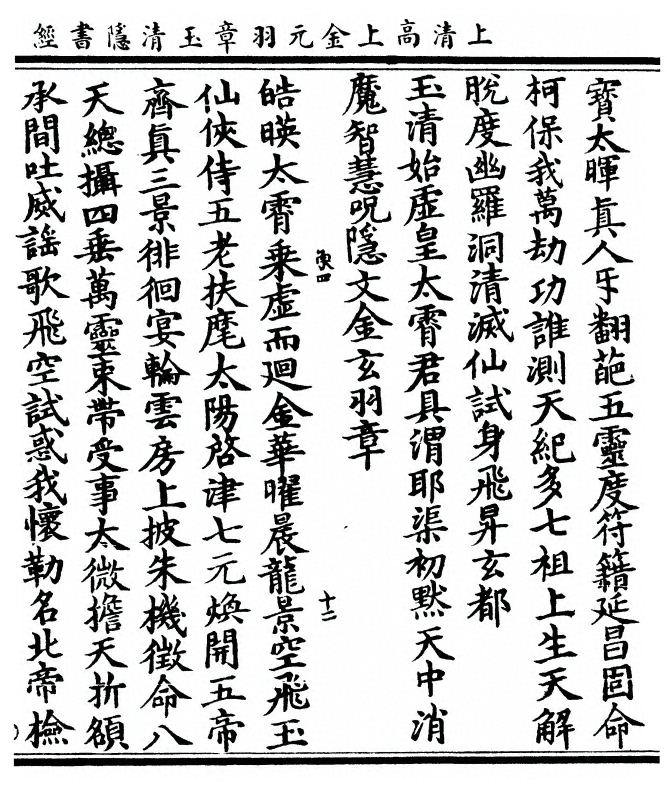 上清高上金元羽章玉清隱書經
寶太暉真人㸦翻葩五靈度符籍延昌固命
柯保我萬劫功誰測天紀多七祖上生天解
脫度幽羅洞清滅仙試身飛昇玄都
玉清始虛皇太霄君具渭耶渠初默天中消
魔智慧呪隱文金玄羽章
四
十二
皓暎太霄乗虛而廻金華曜晨龍景空飛玉
仙俠侍五老扶麾太陽啓津七元煥開五帝
齊真三景徘徊宴輪雲房上披朱機徵命八
天總攝四垂萬靈束帶受事太微擔天折額
承間吐威謠歌飛空試惑我懷勒名北帝檢